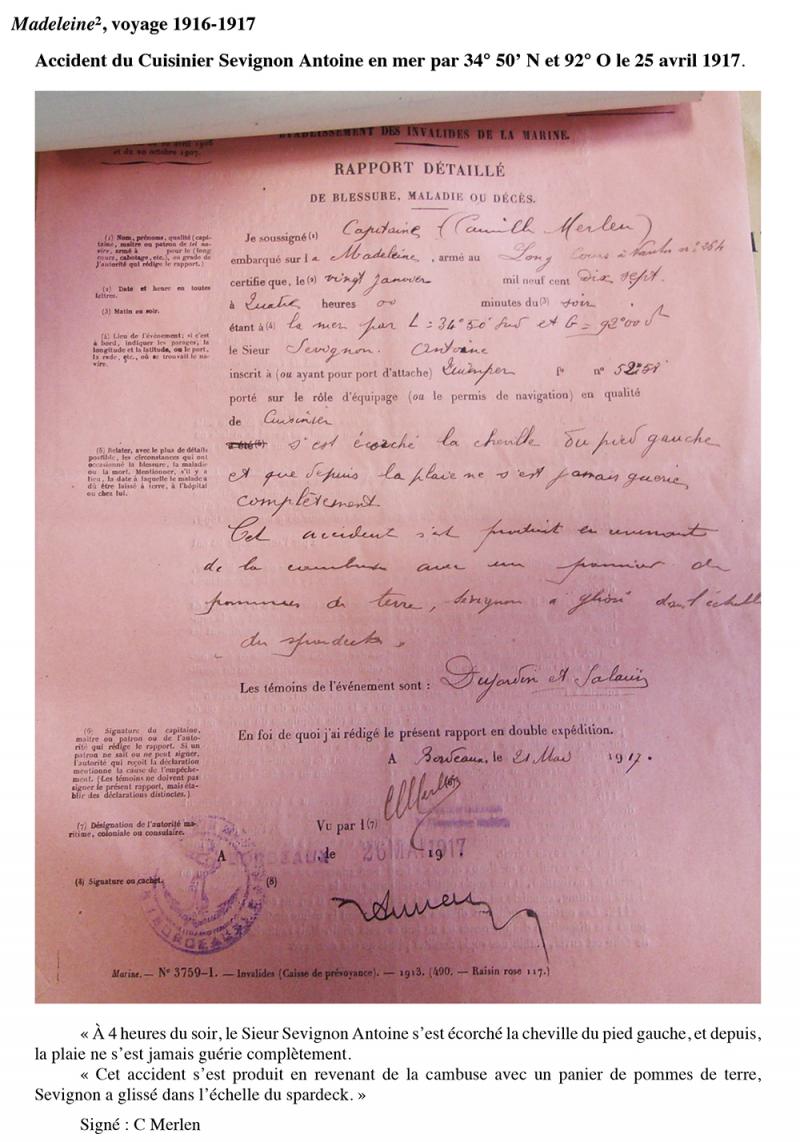 Madeleine², voyage 1916-1917
Accident du Cuisinier Sevignon Antoine en mer par 34° 50’ N et 92° O le 25 avril 1917.
et du 20 octobre 1907.
ETABLISSEMENT DES INVALIDES DE LA MARINE.
RAPPORT DÉTAILLÉ
DE BLESSURE, MALADIE OU DÉCÈS.
(1) Nom, prénoms, qualité (capi-
taine, maître ou patron de tel na-
vire, armé à pour le (long
cours, cabotage, etc.), ou grade de
l'autorité qui rédige le rapport.)
(2) Date et heure en toutes
lettres.
(3) Matin ou soir.
(4) Lieu de l'événement; si c'est
à bord, indiquer les parages, la
longitude et la latitude, ou le port,
la rade, etc., où se trouvait le na-
vire.
Je soussigné (1) Capitaine (Camille Merlen)
embarqué sur la Madeleine, armé au Long Cours à Nantes n° 264
certifie que, le (2) vingt janvier mil neuf cent dix sept.
à Quatre heures 00 minutes du (3) soir
étant à (4) la mer par L = 34° 50' Sud et G = 92° 00
le Sieur Sevignon. Antoine
inscrit à (ou ayant pour port d'attache) Quimper f° n° 5258
porté sur le rôle d'équipage (ou le permis de navigation) en qualité
de Cuisinier
(5) Relater, avec le plus de détails
possible, les circonstances qui ont
occasionné la blessure, la maladie
ou la mort. Mentionner, s'il y a
lieu, la date à laquelle le malade a
dû être laissé à terre, à l'hôpital
ou chez lui.
a été (5) s'est écorché la cheville du pied gauche
et que depuis la plaie ne s'est jamais guérie
complètement
Cet accident s'est produit en revenant
de la cambuse avec un panier de
pommes de terre, Sevignon a glissé dans l'échelle
du spardeck.
Les témoins de l'événement sont : Dujardin et Salaun
En foi de quoi j'ai rédigé le présent rapport en double expédition.
A Bordeaux, le 21 Mai 1917.
(6) Signature du capitaine,
maître ou patron ou de l'auto-
rité qui rédige le rapport. Si un
patron ne sait ou ne peut signer,
l'autorité qui reçoit la déclaration
mentionne la cause de l'empêche-
ment. (Les témoins ne doivent pas
signer le présent rapport, mais éta-
blir des déclarations distinctes.)
CMerlen (6)
(7) Désignation de l'autorité ma-
ritime, coloniale ou consulaire.
Vu par l (7)
A BORDEAUX, le 26 MAI 1917.
(8) Signature ou cachet.
(8)
BORDEAUX
Marine. — N° 3759-1. — Invalides (Caisse de prévoyance). — 1913. (490. — Raisin rose 117.)
« À 4 heures du soir, le Sieur Sevignon Antoine s’est écorché la cheville du pied gauche, et depuis,
la plaie ne s’est jamais guérie complètement.
« Cet accident s’est produit en revenant de la cambuse avec un panier de pommes de terre,
Sevignon a glissé dans l’échelle du spardeck. »
Signé : C Merlen